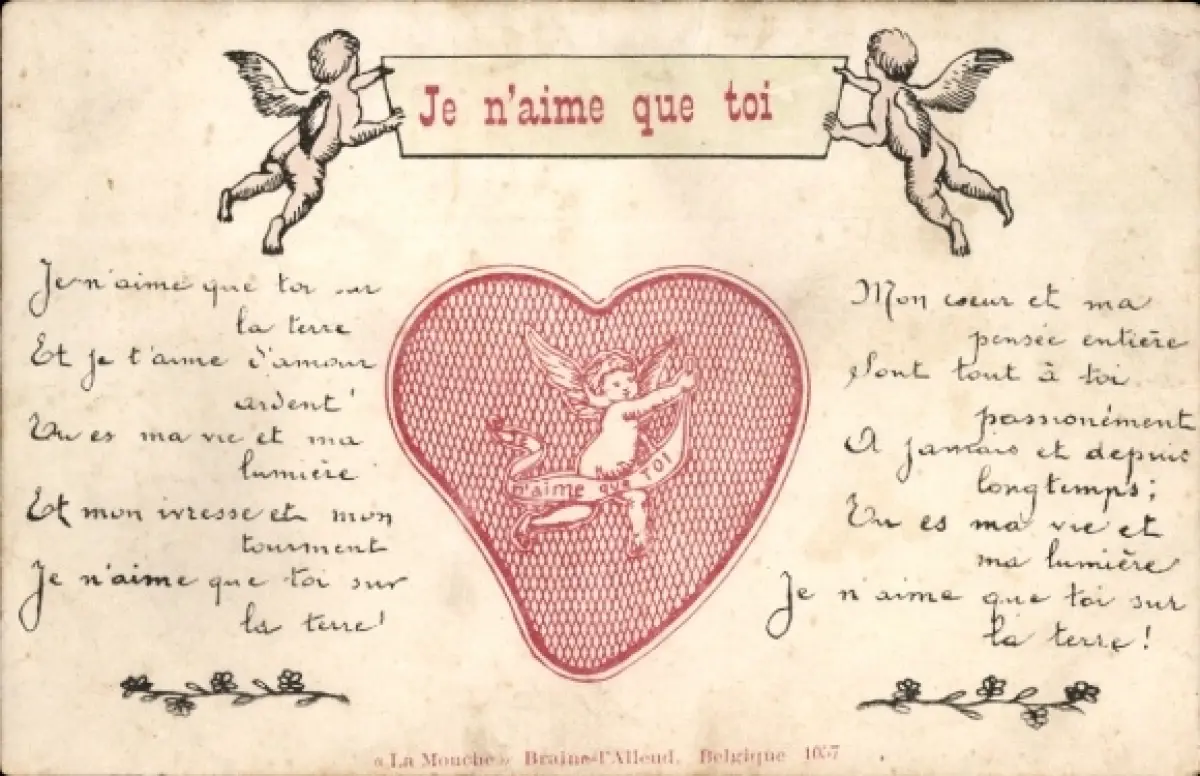 Je n'aime que toi
Je n'aime que toi sur
la terre
Et je t'aime d'amour
ardent!
Tu es ma vie et ma
lumière
Et mon ivresse et mon
tourment
Je n'aime que toi sur
la terre!
n'aime que TOI
Mon coeur et ma
pensée entière
Sont tout à toi
passionément
A jamais et depuis
longtemps;
Tu es ma vie et
ma lumière
Je n'aime que toi sur
la terre!
« La Mouche » Braine-l'Alleud, Belgique